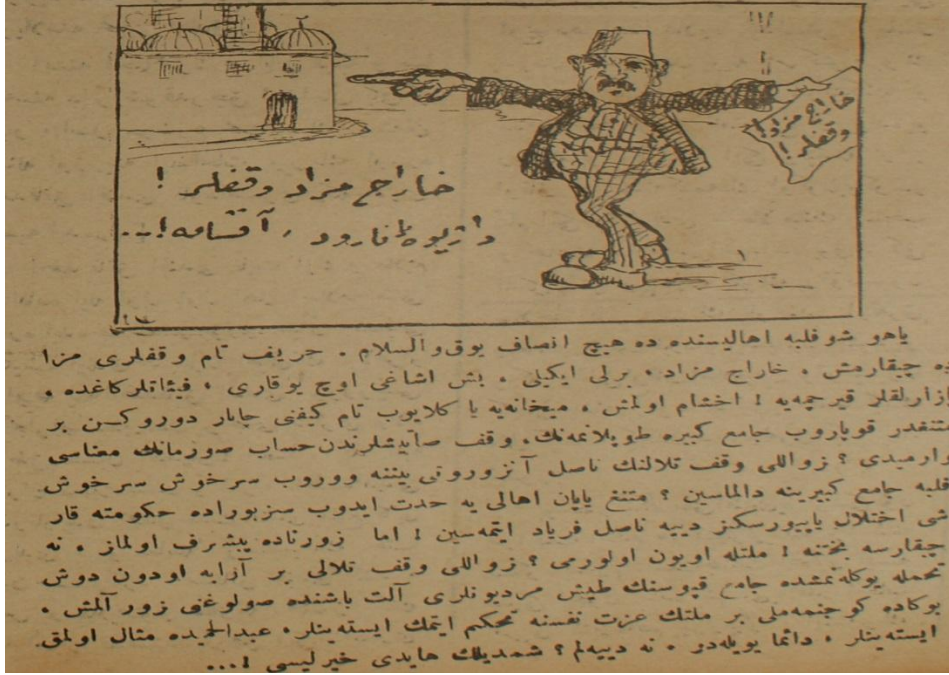 خاراج مزاد!
وقفلر!
خاراج مزاد وقفلر!
آقسامه!...
ياهو شو فلبه اهاليسنده ده هيچ انصاف يوق والسلام. حريف تام وقفلرى مزا
ده چيقارمش. خاراج مزاد، برلى ايكيلى. بش اشاغى اوچ يوقارى، فيئاتلر كاغده.
بازارلقلر قيرجمه يه! اخشام اولمش. ميخانه يه يا كلايوب تام كيفنى چاتار دوروكسن بر
متنغدر قوپاروب جامع كبيره طوپلانمه نك، وقف صاتيشلرندن حساب صورمانك معناسى
وارميدى؟ زواللى وقف تلالنك ناصل آنزوروتى بيننه ووروب سرخوش سرخوش
فلبه جامع كبيرينه دالماسين؟ متنغ ياپان اهالى يه حدت ايدوب سز بوراده حكومته قار
شى اختلال ياپيورسكز دييه ناصل فرياد ايتمه سين! اما زورناده پيشرف اولماز. نه
چيقارسه بختنه! ملتله اويون اولورمى؟ زواللى وقف تلالى بر آرابه اودون دوش
تحمله يوكله نمشده جامع قپوسنك طيش مرديونلرى آلت باشنده صولوغنى زور آلمش.
بوكاده كوجنمه ملى بر ملتك عزت نفسنه تحكم ايتمك ايسته ينلر، عبدالحميده مثال اولمق
ايسته ينلر، دائما بويله در. نه دييه لم؟ شمديلك هايدى خيرليسى!...